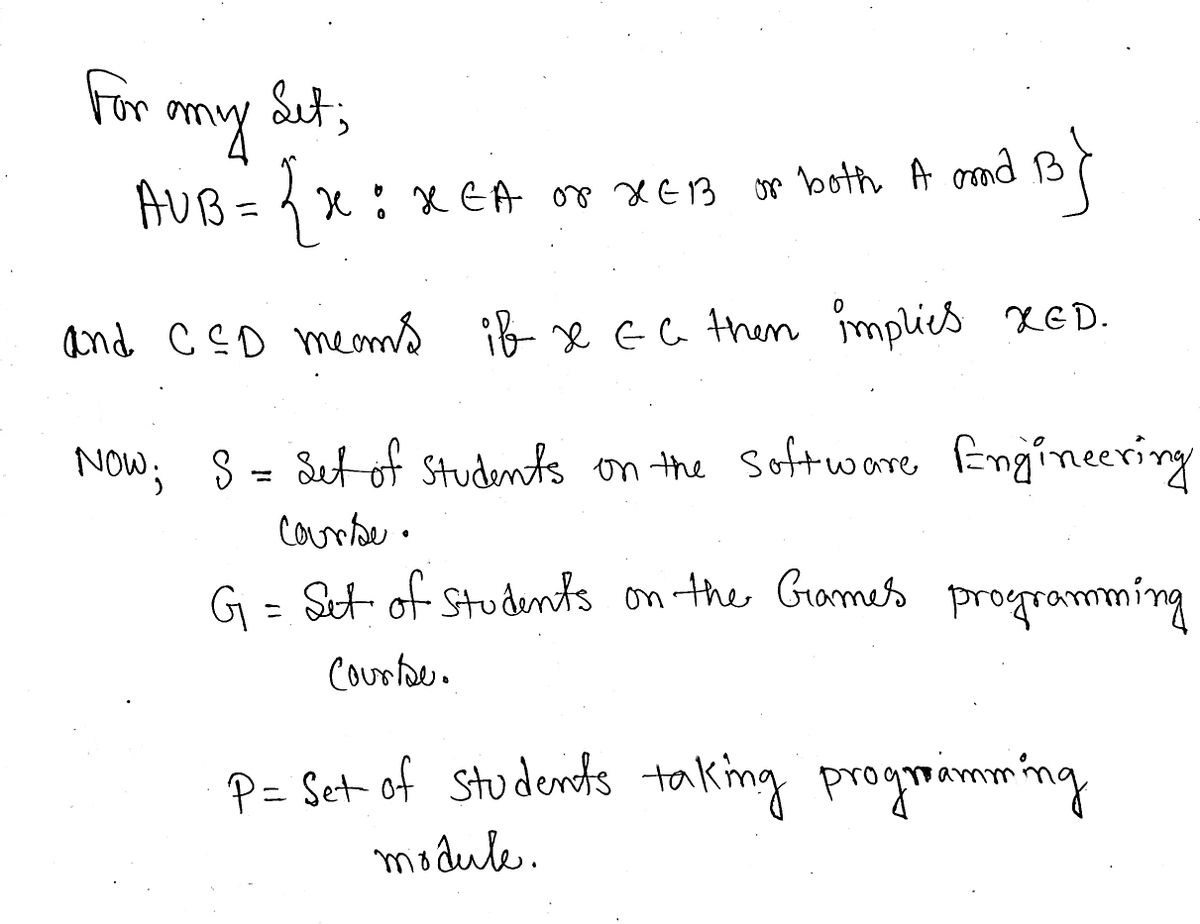 For any Set;
A∪B = { x : x ∈ A or x ∈ B or both A and B }
and C ⊆ D means if x ∈ C then implies x ∈ D.
NOW; S = Set of Students on the Software Engineering
Course.
G = Set of Students on the Games programming
Course.
P = Set of Students taking programming
module.